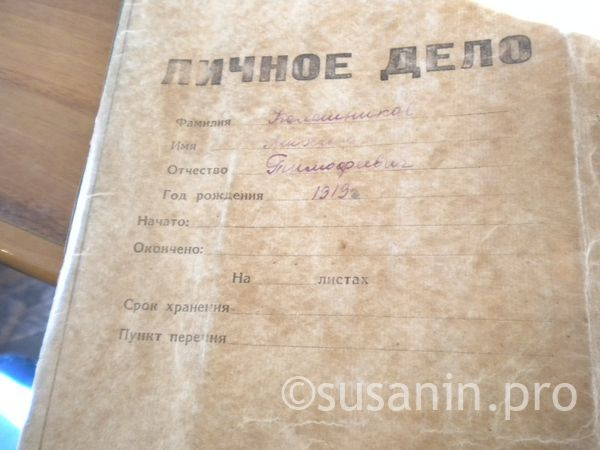 ЛИЧНОЕ ДЕЛО
Фамилия
Имя
Отчество Тимофеевич
Год рождения 1919г
Начато:
Окончено:
На листах
Срок хранения
Пункт перечня
©susanin.pro